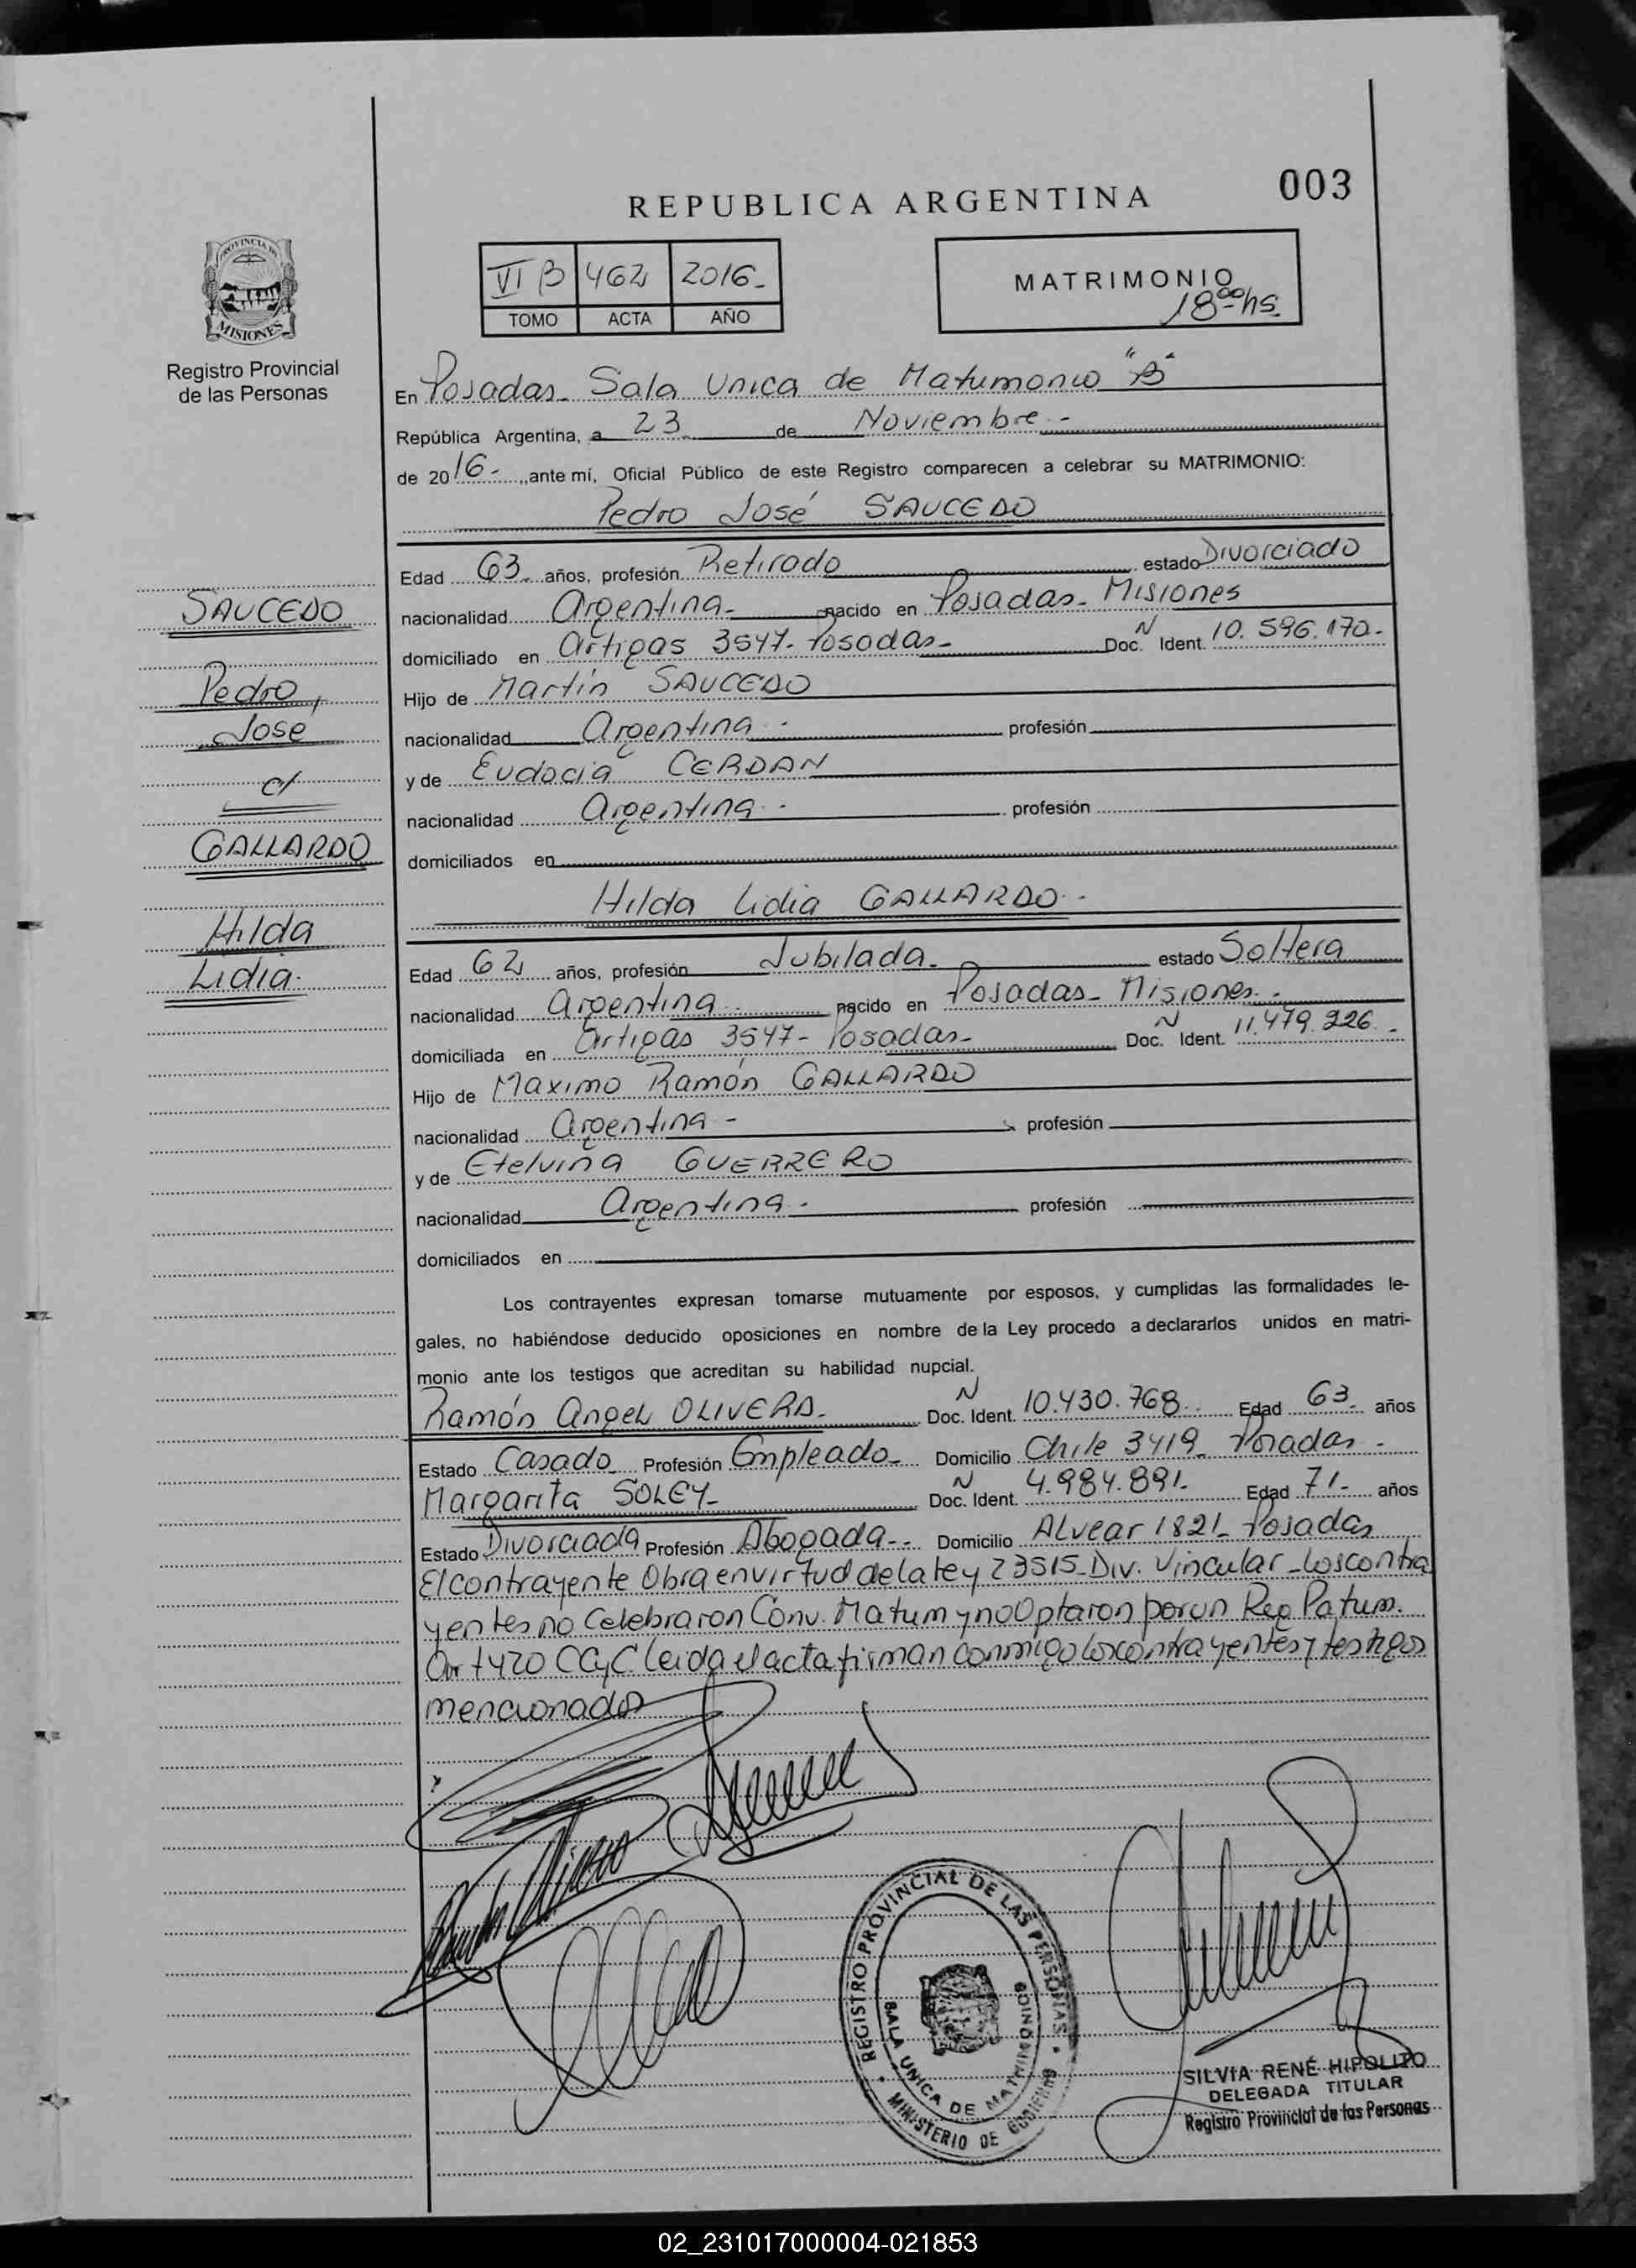 003
REPUBLICA ARGENTINA
PROVINCIA DE
MISIONES
Registro Provincial
de las Personas
VI B 462 2016.
TOMO ACTA AÑO
MATRIMONIO
18 00 hs.
En Posadas. Sala Unica de Matrimonio "B"
República Argentina, a 23 de Noviembre.-
de 2016.- ,,ante mí, Oficial Público de este Registro comparecen a celebrar su MATRIMONIO:
Pedro José SAUCEDO
Edad 63. años, profesión Retirado estado Divorciado
nacionalidad Argentina. nacido en Posadas. Misiones
domiciliado en Artigas 3547. Posadas. Doc. N Ident. 10.596.170.-
Hijo de Martín SAUCEDO
nacionalidad Argentina.- profesión
y de Eudocia CERDAN
nacionalidad Argentina.- profesión
domiciliados en
SAUCEDO
Pedro,
José
c/
GALLARDO
Hilda
Lidia.
Hilda Lidia GALLARDO.-
Edad 62 años, profesión Jubilada. estado Soltera
nacionalidad Argentina nacido en Posadas. Misiones.-
domiciliada en Artigas 3547- Posadas. Doc. N Ident. 11.479.226.-
Hijo de Maximo Ramón GALLARDO
nacionalidad Argentina- profesión
y de Etelvina GUERRERO
nacionalidad Argentina.- profesión
domiciliados en
Los contrayentes expresan tomarse mutuamente por esposos, y cumplidas las formalidades le-
gales, no habiéndose deducido oposiciones en nombre de la Ley procedo a declararlos unidos en matri-
monio ante los testigos que acreditan su habilidad nupcial.
Ramón Angel OLIVERA. Doc. N Ident. 10.430.768. Edad 63. años
Estado Casado Profesión Empleado. Domicilio Chile 3419. Posadas.-
Margarita SOLEY- Doc. N Ident. 4.984.891. Edad 71- años
Estado Divorciada Profesión Abogada.- Domicilio Alvear 1821. Posadas
El contrayente Obra en virtud de la ley 23515. Div. Vincular. Los contra
yentes no Celebraron Conv. Matrim y no Optaron por un Reg Patrim.
Art 420 CCyC. Leida el acta firman conmigo los contrayentes y testigos
mencionados
REGISTRO PROVINCIAL DE LAS PERSONAS
SALA UNICA DE MATRIMONIOS
MINISTERIO DE GOBIERNO
SILVIA RENÉ HIPOLITO
DELEGADA TITULAR
Registro Provincial de las Personas
02_231017000004-021853